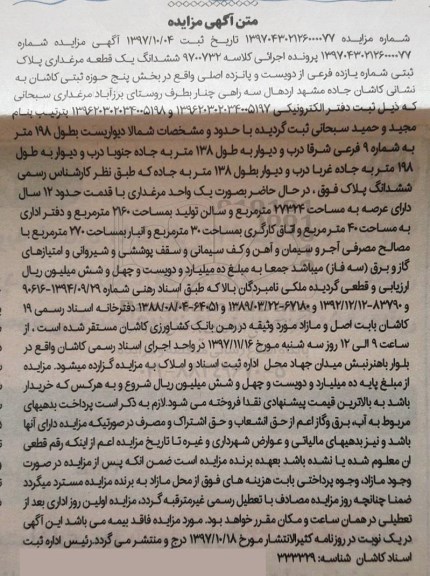 متن آگهی مزایده
شماره مزایده ۱۳۹۷۰۴۳۰۲۱۲۶۰۰۰۰۷۷ تاریخ ثبت ۱۳۹۷/۱۰/۰۴ آگهی مزایده شماره
۱۳۹۷۰۴۳۰۲۱۲۶۰۰۰۰۷۷ پرونده اجرائی کلاسه ۹۷۰۰۷۳۲ ششدانگ یک قطعه مرغداری پلاک
ثبتی شماره یازده فرعی از دویست و پانزده اصلی واقع در بخش پنج حوزه ثبتی کاشان به
نشانی کاشان جاده مشهد اردهال سه راهی چنار بطرف روستای برزآباد مرغداری سبحانی
که ذیل ثبت دفتر الکترونیکی ۱۳۹۶۲۰۳۰۲۰۳۴۰۰۵۱۹۷ و ۱۳۹۶۲۰۳۰۲۰۳۴۰۰۵۱۹۸ بترتیب بنام
مجید و حمید سبحانی ثبت گردیده با حدود و مشخصات شمالا دیواریست بطول ۱۹۸ متر
به شماره ۹ فرعی شرقا درب و دیوار به طول ۱۳۸ متر به جاده جنوبا درب و دیوار به طول
۱۹۸ متر به جاده غربا درب و دیوار بطول ۱۳۸ متر به جاده که طبق نظر کارشناس رسمی
ششدانگ پلاک فوق ، در حال حاضر بصورت یک واحد مرغداری با قدمت حدود ۱۲ سال
دارای عرصه به مساحت ۲۷۳۲۴ مترمربع و سالن تولید بمساحت ۲۱۶۰ مترمربع و دفتر اداری
به مساحت ۴۰ متر مربع و اتاق کارگری بمساحت ۳۰ مترمربع و انبار بمساحت ۲۷۰ مترمربع با
مصالح مصرفی آجر و سیمان و آهن و کف سیمانی و سقف پوششی و شیروانی و امتیازهای
گاز و برق (سه فاز) میباشد جمعا به مبلغ ده میلیارد و دویست و چهل و شش میلیون ریال
ارزیابی و قطعی گردیده ملکی نامبردگان بالا که طبق اسناد رهنی شماره ۱۳۹۴/۰۹/۲۹-۹۰۶۱۶
و ۸۳۷۹۰-۱۳۹۲/۱۲/۱۲ و ۶۷۱۸۰-۱۳۸۹/۰۳/۲۲ و ۶۴۰۵۱-۱۳۸۸/۰۸/۰۴ دفترخانه اسناد رسمی ۱۹
کاشان بابت اصل و مازاد مورد وثیقه در رهن بانک کشاورزی کاشان مستقر شده است ، از
ساعت ۹ الی ۱۲ روز سه شنبه مورخ ۱۳۹۷/۱۱/۱۶ در واحد اجرای اسناد رسمی کاشان واقع در
بلوار باهنر نبش میدان جهاد محل اداره ثبت اسناد و املاک به مزایده گزارده میشود. مزایده
از مبلغ پایه ده میلیارد و دویست و چهل و شش میلیون ریال شروع و به هر کس که خریدار
باشد به بالاترین قیمت پیشنهادی نقدا فروخته می شود.لازم به ذکر است پرداخت بدهیهای
مربوط به آب، برق وگاز اعم از حق انشعاب و حق اشتراک و مصرف در صورتیکه مزایده دارای آنها
باشد و نیز بدهیهای مالیاتی و عوارض شهرداری و غیره تا تاریخ مزایده اعم از اینکه رقم قطعی
ان معلوم شده یا نشده باشد بعهده برنده مزایده است ضمن انکه پس از مزایده در صورت
وجود مازاد، وجوه پرداختی بابت هزینه های فوق از محل مازاد به برنده مزایده مسترد میگردد
ضمنا چنانچه روز مزایده مصادف با تعطیل رسمی غیرمترقبه گردد، مزایده اولین روز اداری بعد از
تعطیلی در همان ساعت و مکان مقرر خواهد بود. مورد مزایده فاقد بیمه می باشد این آگهی
در یک نوبت در روزنامه کثیرالانتشار مورخ ۱۳۹۷/۱۰/۱۸ درج و منتشر می گردد.رئیس اداره ثبت
اسناد کاشان شناسه: ۳۳۳۳۲۹